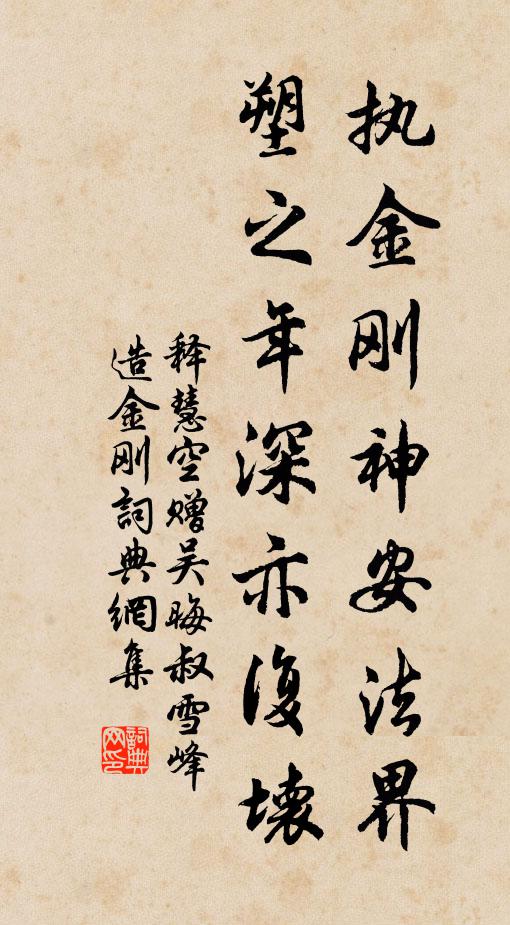 执金刚神安法界
塑之年深亦復壞
释慧空赠吴晦叔雪峰
造金刚詞典網集
詞典网印